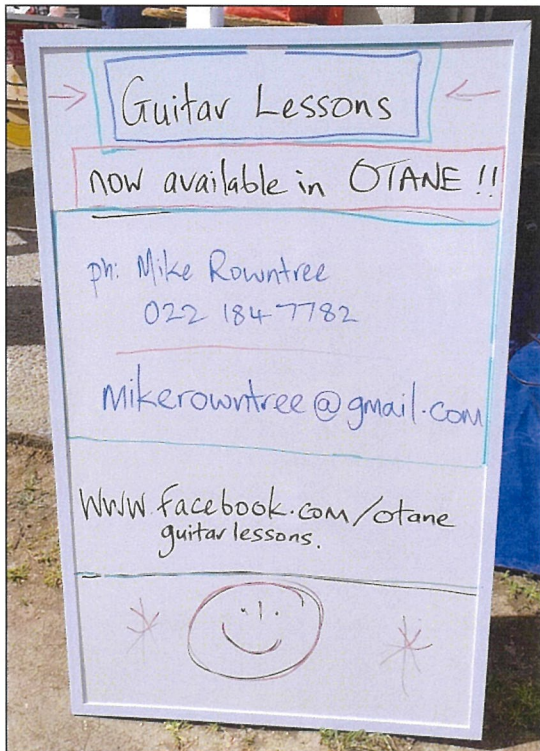 Guitar Lessons
now available in OTANE !!
ph: Mike Rowntree
022 184 7782
mikerowntree@gmail.com
www.facebook.com/otane
guitar lessons.